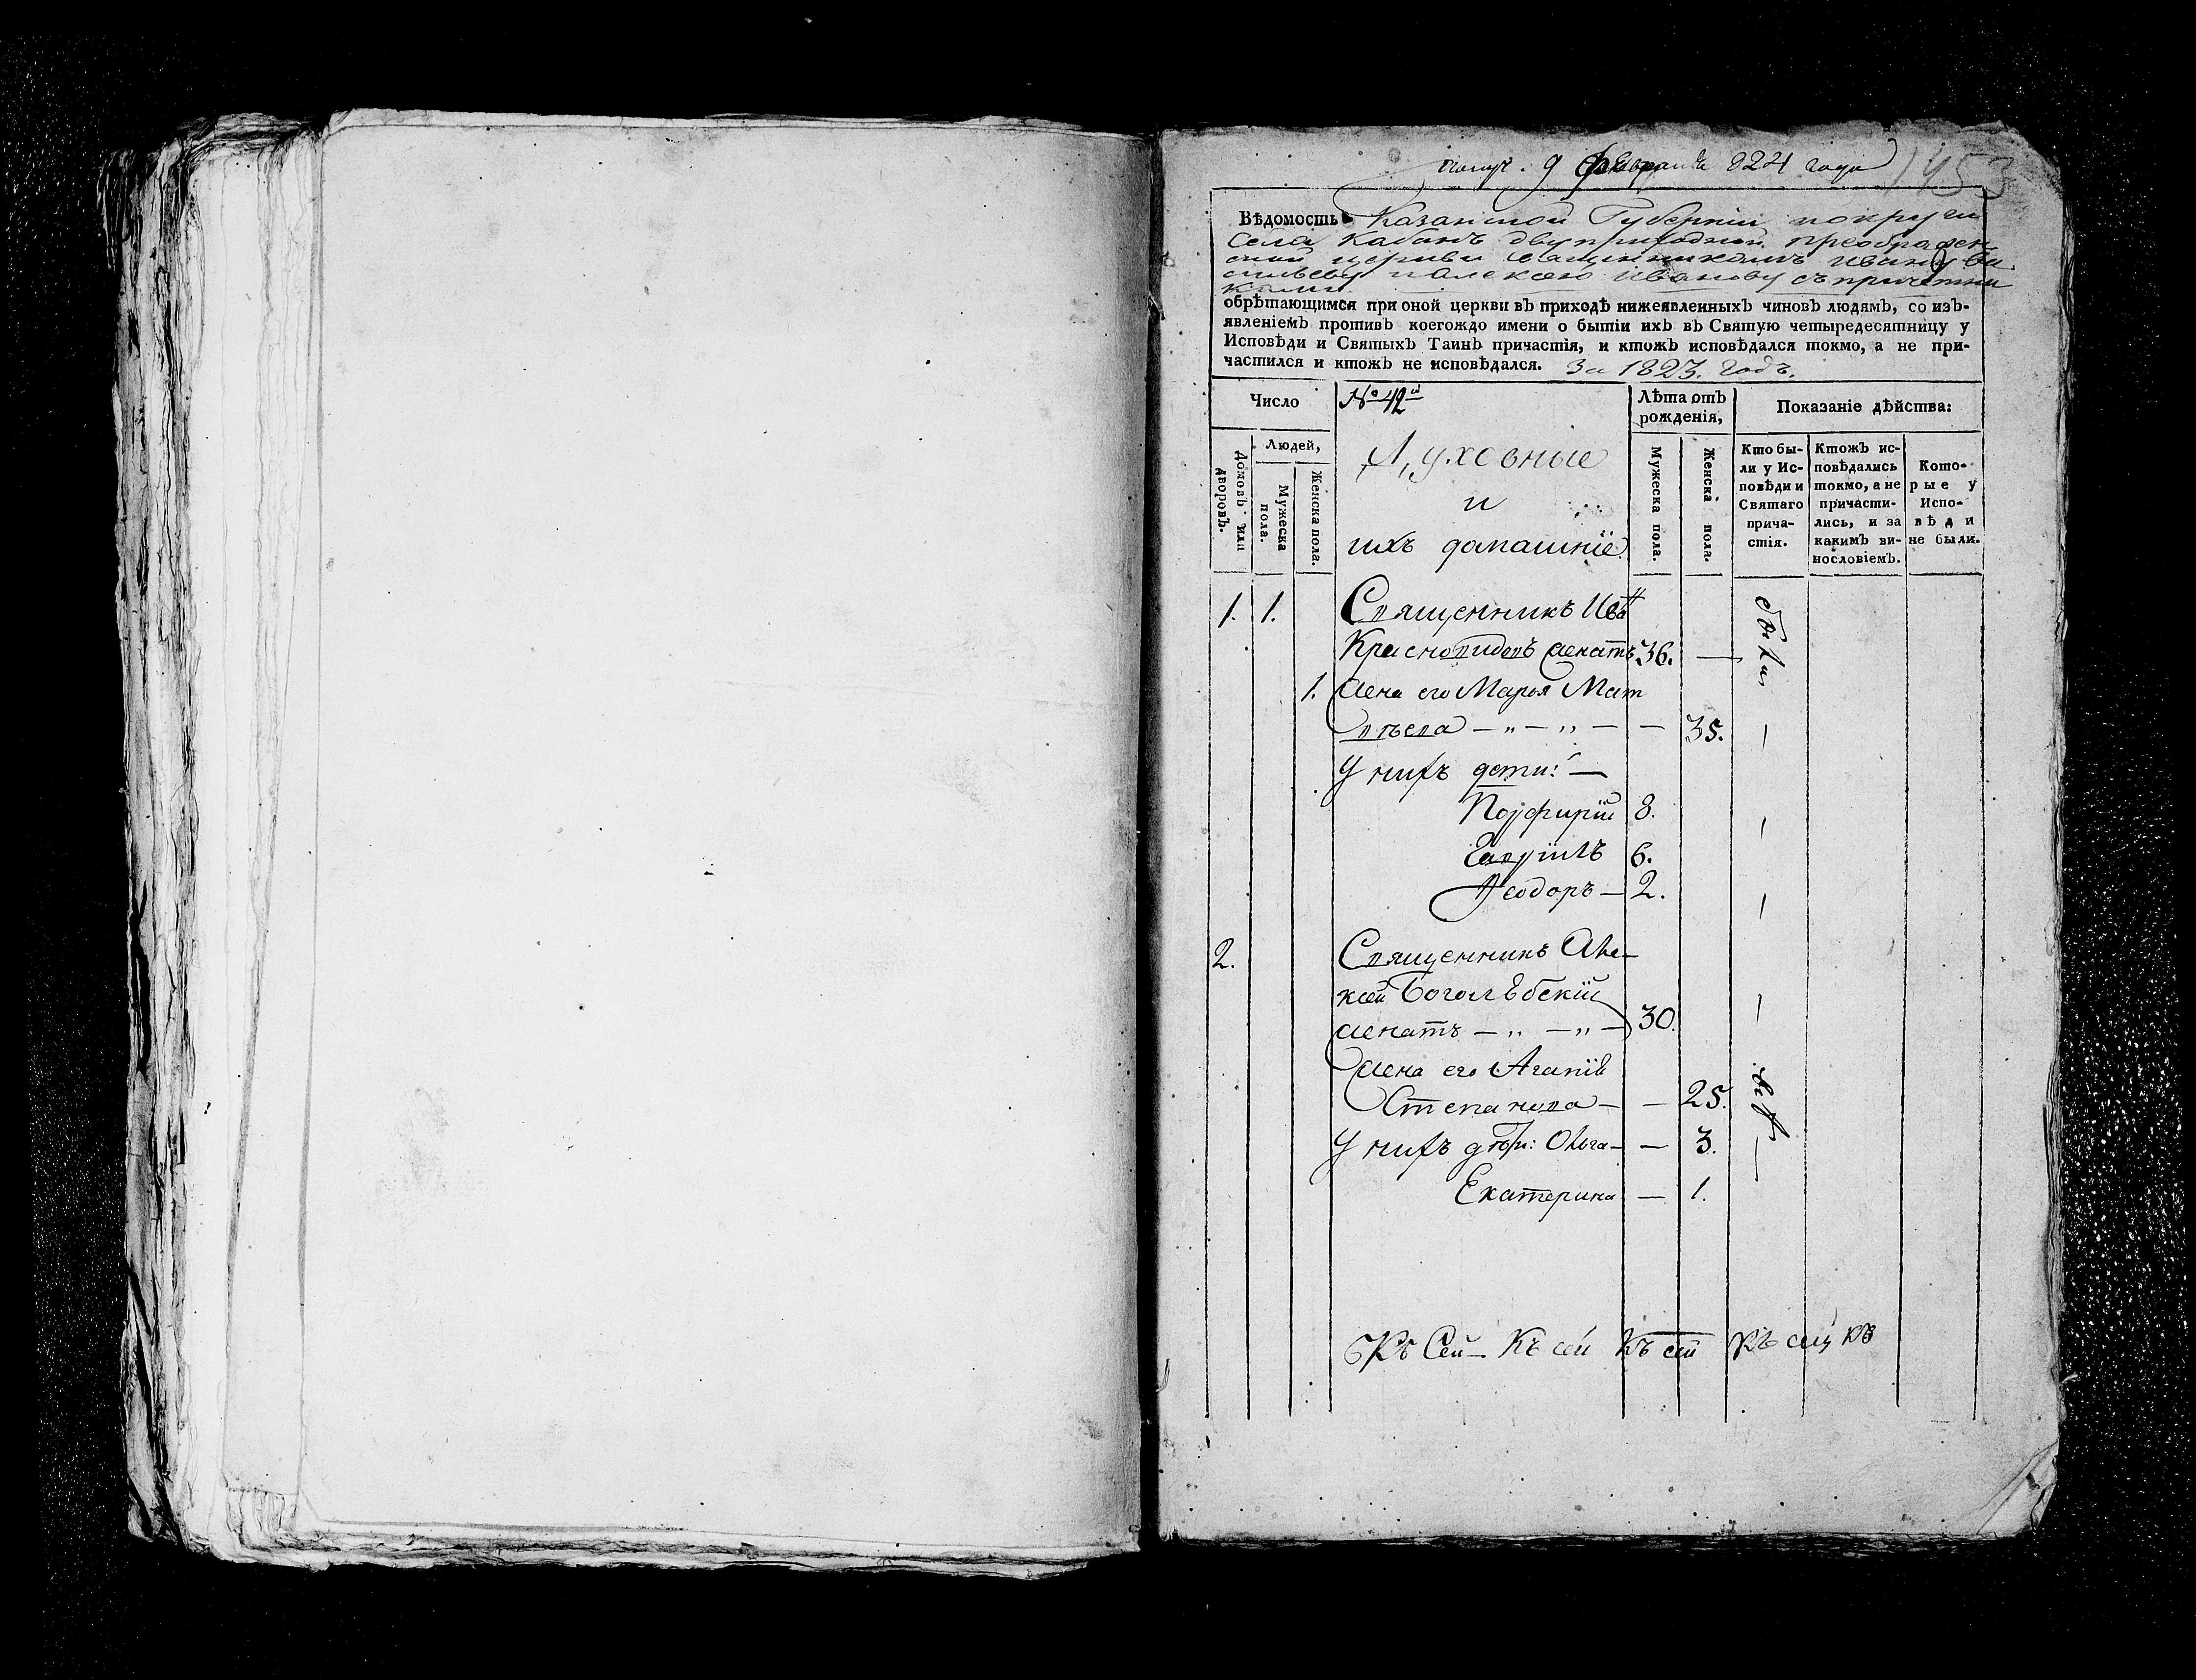 9 февраля 1824 года
1453
Вѣдомость Казанской Губерніи
села Кабанъ двуприходной преображен
ской церкви священникомъ Иваномъ Ва
сильевымъ Алексею Иванову съ причетни
ками
обрѣтающимся при оной церкви въ приходѣ нижеявленныхъ чиновъ людямъ, со изъ-
явленіемъ противъ коегождо имени о бытіи ихъ въ Святую четыредесятницу у
Исповѣди и Святыхъ Таинъ причастія, и ктожъ исповѣдался токмо, а не при-
частился и ктожъ не исповѣдался. За 1823. Годъ.
Число
Людей,
Домовъ или дворовъ.
Мужеска пола.
Женска пола.
№ 42й
Духовные
и
ихъ домашніе
Лѣта отъ
рожденія,
Мужеска пола.
Женска пола.
Показаніе дѣйства:
Кто бы-
ли у Ис-
повѣди и
Святаго
прича-
стія.
Ктожъ ис-
повѣдались
токмо, а не
причасти-
лись, и за
какимъ ви-
нословіемъ.
Кото-
рые у
Испо-
вѣди
не были.
1. 1. Священникъ Ива н
Красновидовъ женатъ 36. —
1. Жена его Марья Мат
вѣева — „ — „ — — 35. —
У нихъ дети: —
Порфирій 8. —
Гавріилъ 6.
Ѳеодоръ — 2. —
2. Священникъ Але-
ксей Боголѣбскій —
женатъ — „ — „ — 30.
Жена его Агапія
Степанова — — 25.
У нихъ дѣти: Ольга — — 3. —
Екатерина — 1.
Къ Сей — Къ сей Къ сей Къ сей Къ